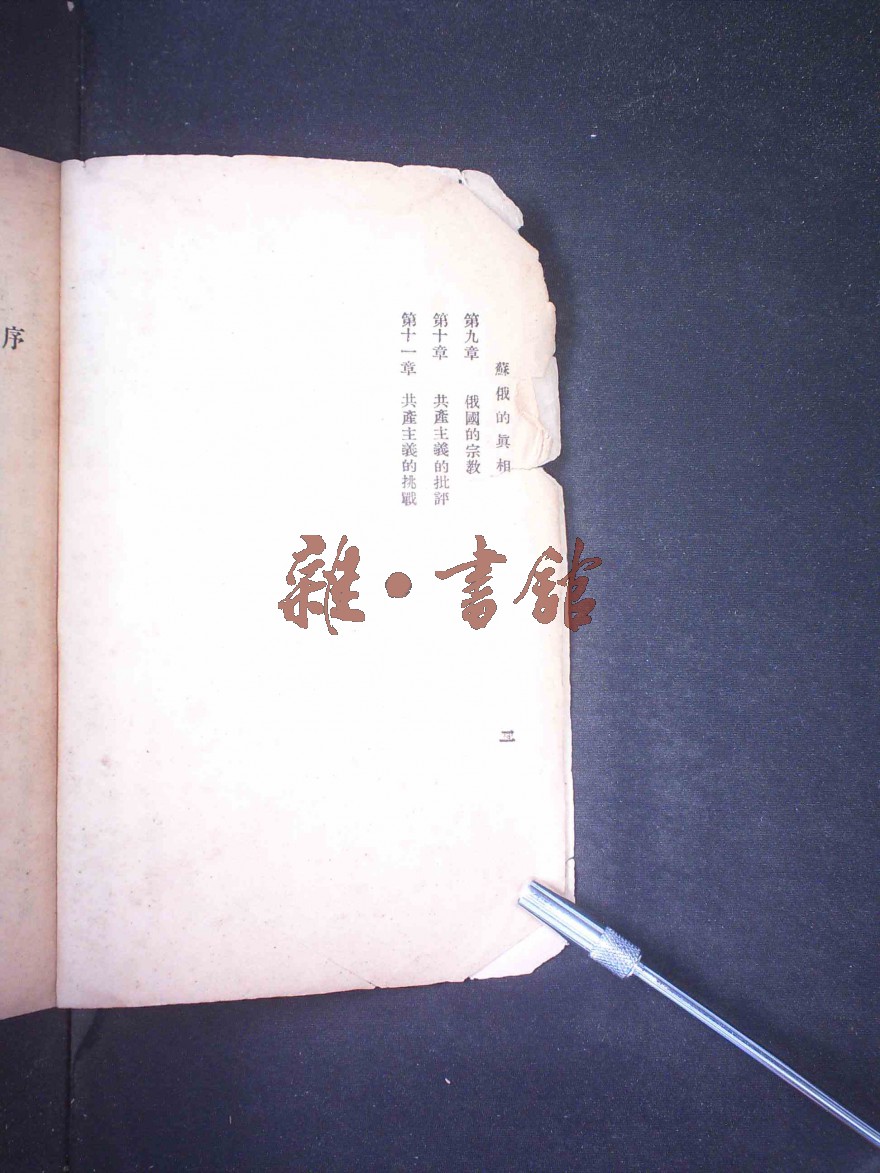 蘇俄的眞相
第九章 俄國的宗教
第十章 共產主義的批評
第十一章 共產主義的挑戰
序
雜•書館